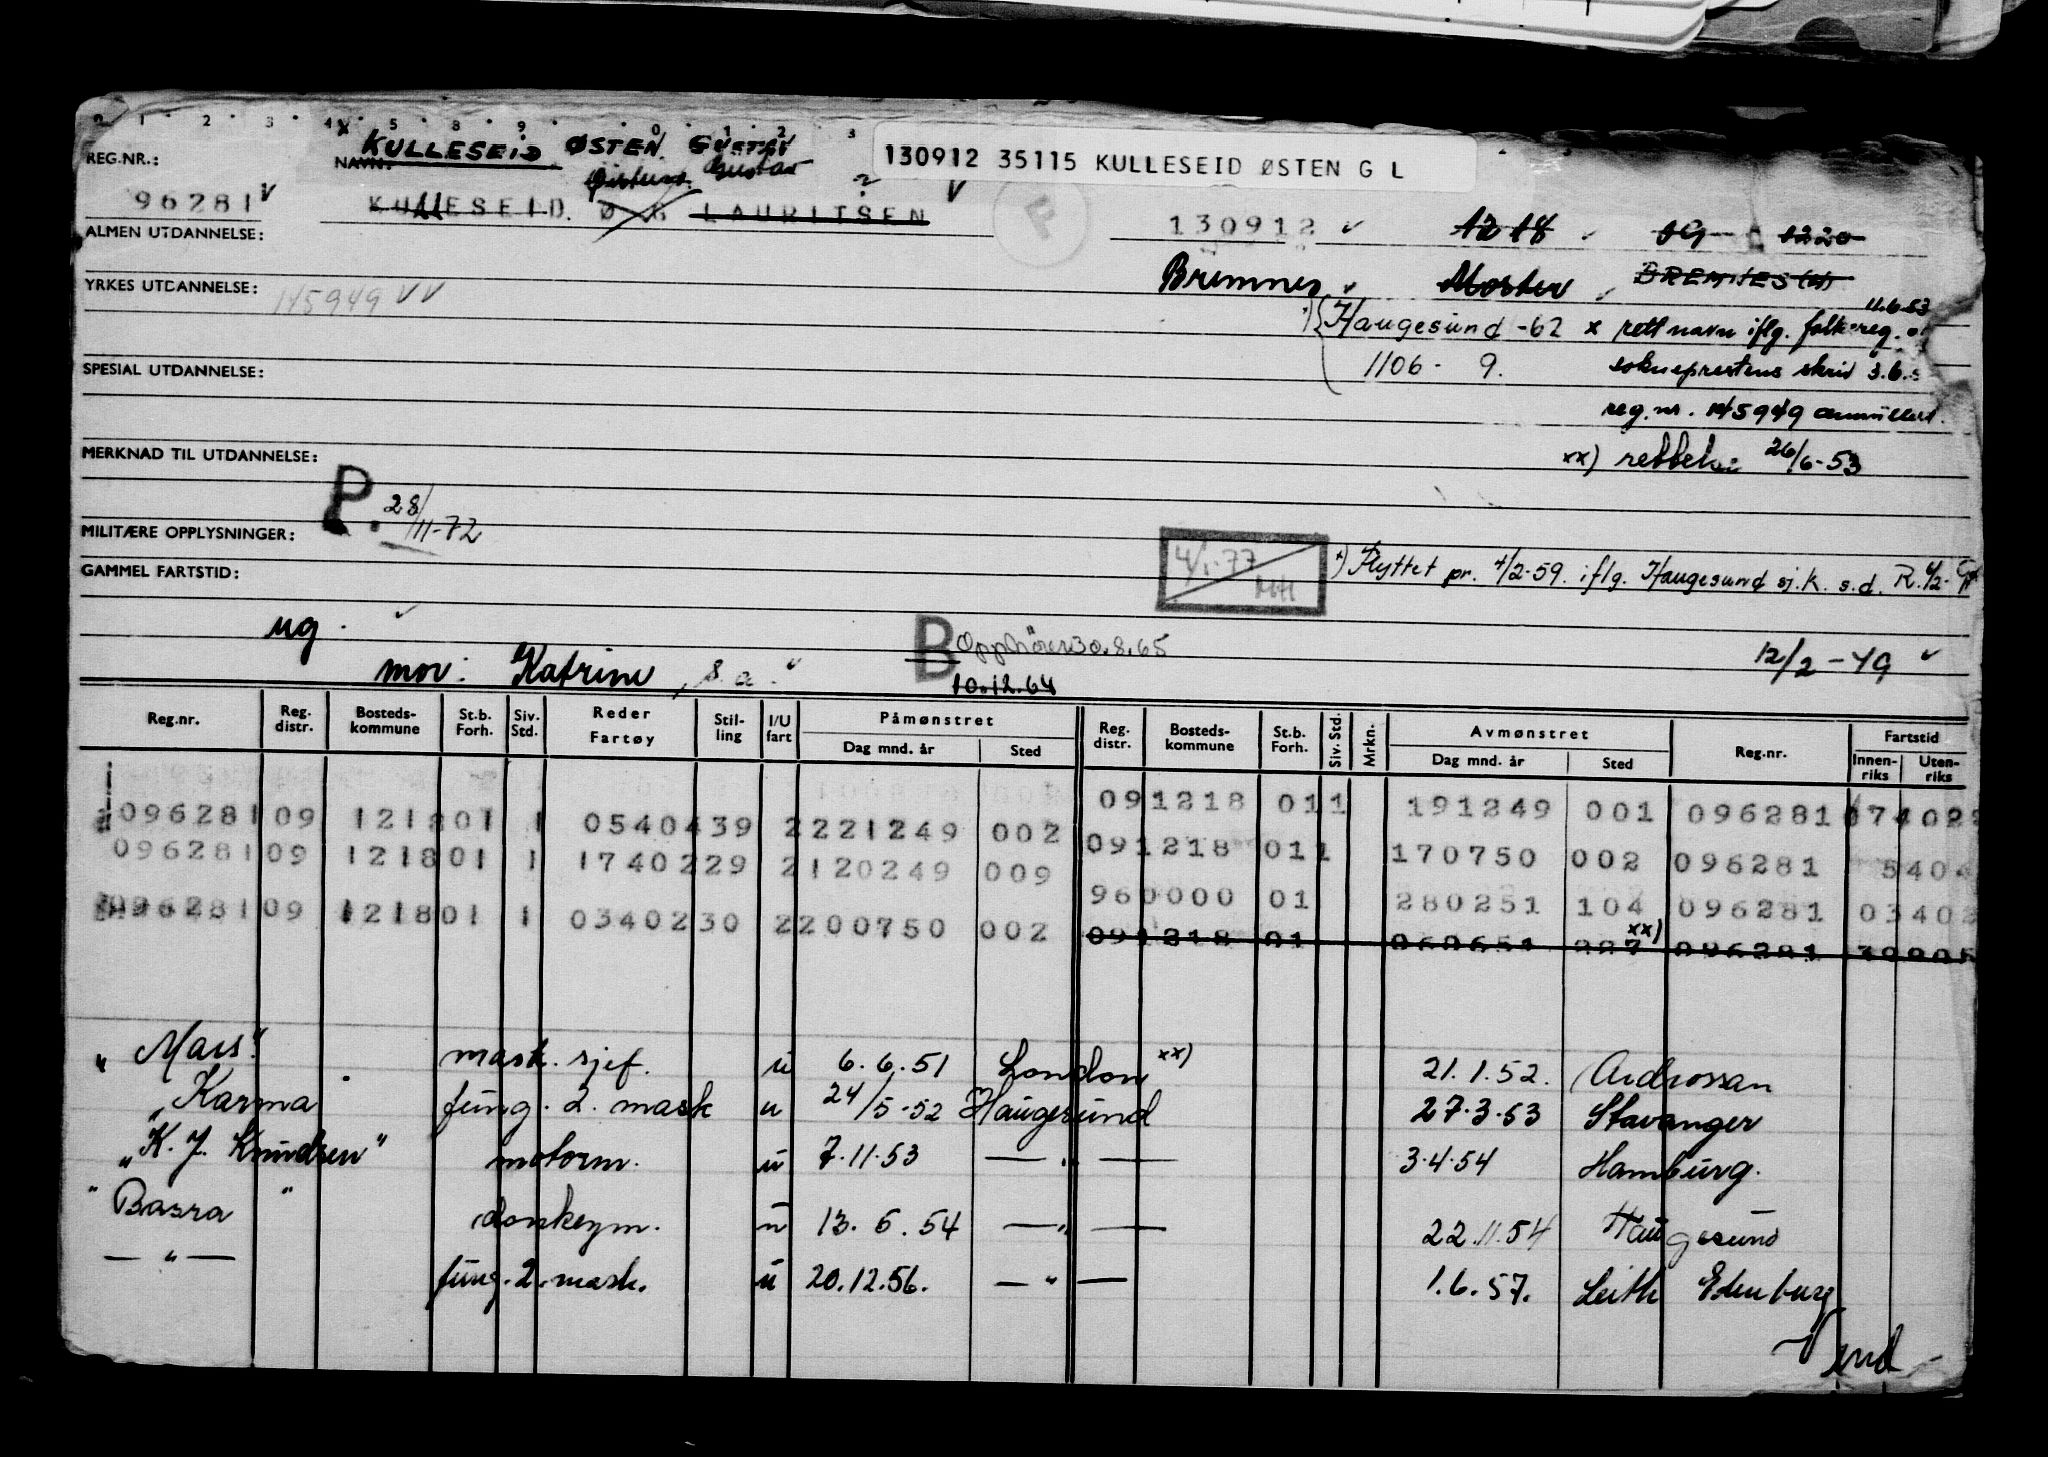 KULLESEID ØSTEN GUSTAV
130912 35115 KULLESEID ØSTEN G L
REG.NR.:
NAVN:
Gustav
96281 V
KULLESEID. Ø G LAURITSEN
?
V
F
ALMEN UTDANNELSE:
130912
12 18
09
1220
YRKES UTDANNELSE:
145949 V V
Bremnes
Moster
BREMNES (H)
11.6.53
Haugesund -62
x rett navn iflg. folkereg. og
1106 - 9.
sokneprestens skriv 3.6.
SPESIAL UTDANNELSE:
reg.nr. 145949 annullert.
MERKNAD TIL UTDANNELSE:
xx) rettelse 26/6-53
P. 28/11-72
MILITÆRE OPPLYSNINGER:
4/1-77
MH
x) Flyttet pr. 4/2-59. iflg. Haugesund sj.k. s.d. R.
GAMMEL FARTSTID:
ug.
B Opphører 30.8.65
10.12.64
12/2-49
mor: Katrine, s.a.
Reg.nr. Reg. distr. Bosteds-kommune St.b. Forh. Siv. Std. Reder Fartøy Stil-ling I/U fart Påmønstret Dag mnd. år Sted Reg. distr. Bosteds-kommune St.b. Forh. Siv. Std. Mrkn. Avmønstret Dag mnd. år Sted Reg.nr. Fartstid Innen-riks Uten-riks
091218 011 191249 001 096281
096281 09 121801 1 0540439 2 221249 002
091218 011 170750 002 096281 5404
096281 09 121801 1 1740229 2 120249 009
960000 01 280251 104 096281 03402
096281 09 121801 1 0340230 2 200750 002
091218 01 060651 227 xx) 096281
"Mars" mask.sjef. u 6.6.51 London xx) 21.1.52. Ardrossan
"Karma fung. 2. mask u 24/5-52 Haugesund 27.3.53 Stavanger
"K. J. Knudsen" motorm. u 7.11.53 — " — 3.4.54 Hamburg.
"Basra" donkeym. u 13.6.54 — " — 22.11.54 Haugesund
— " — fung. 2. mask. u 20.12.56. — " — 1.6.57. Leith Edenburg
Vend